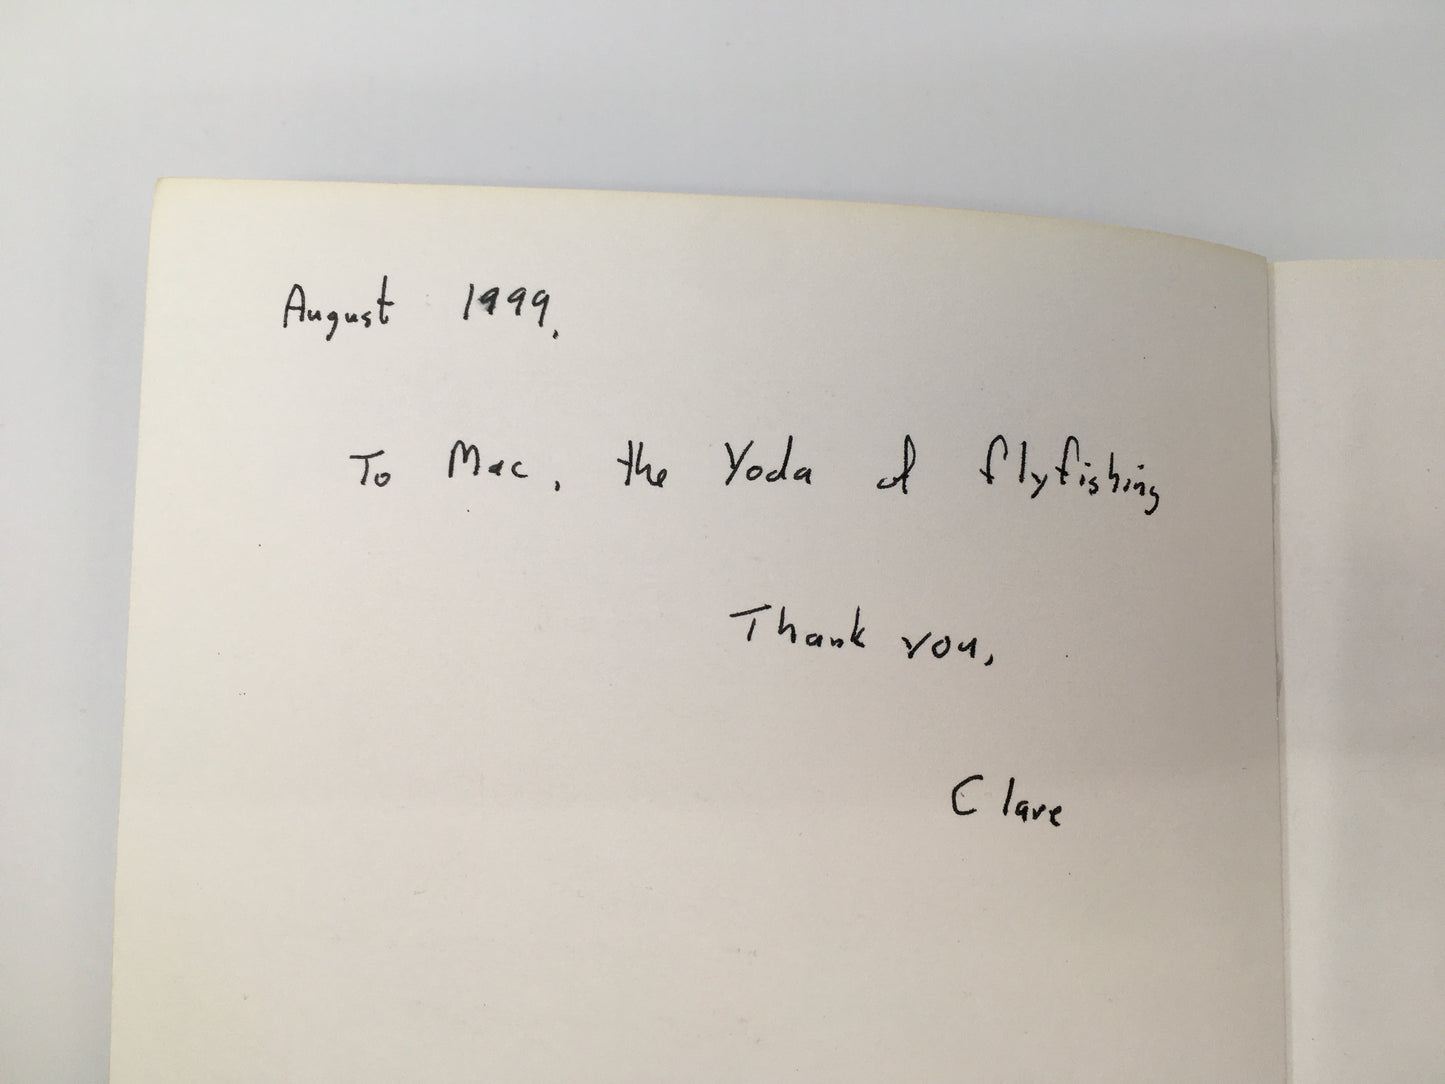 August 1999.
To Mac, the Yoda of flyfishing
Thank you,
Clare